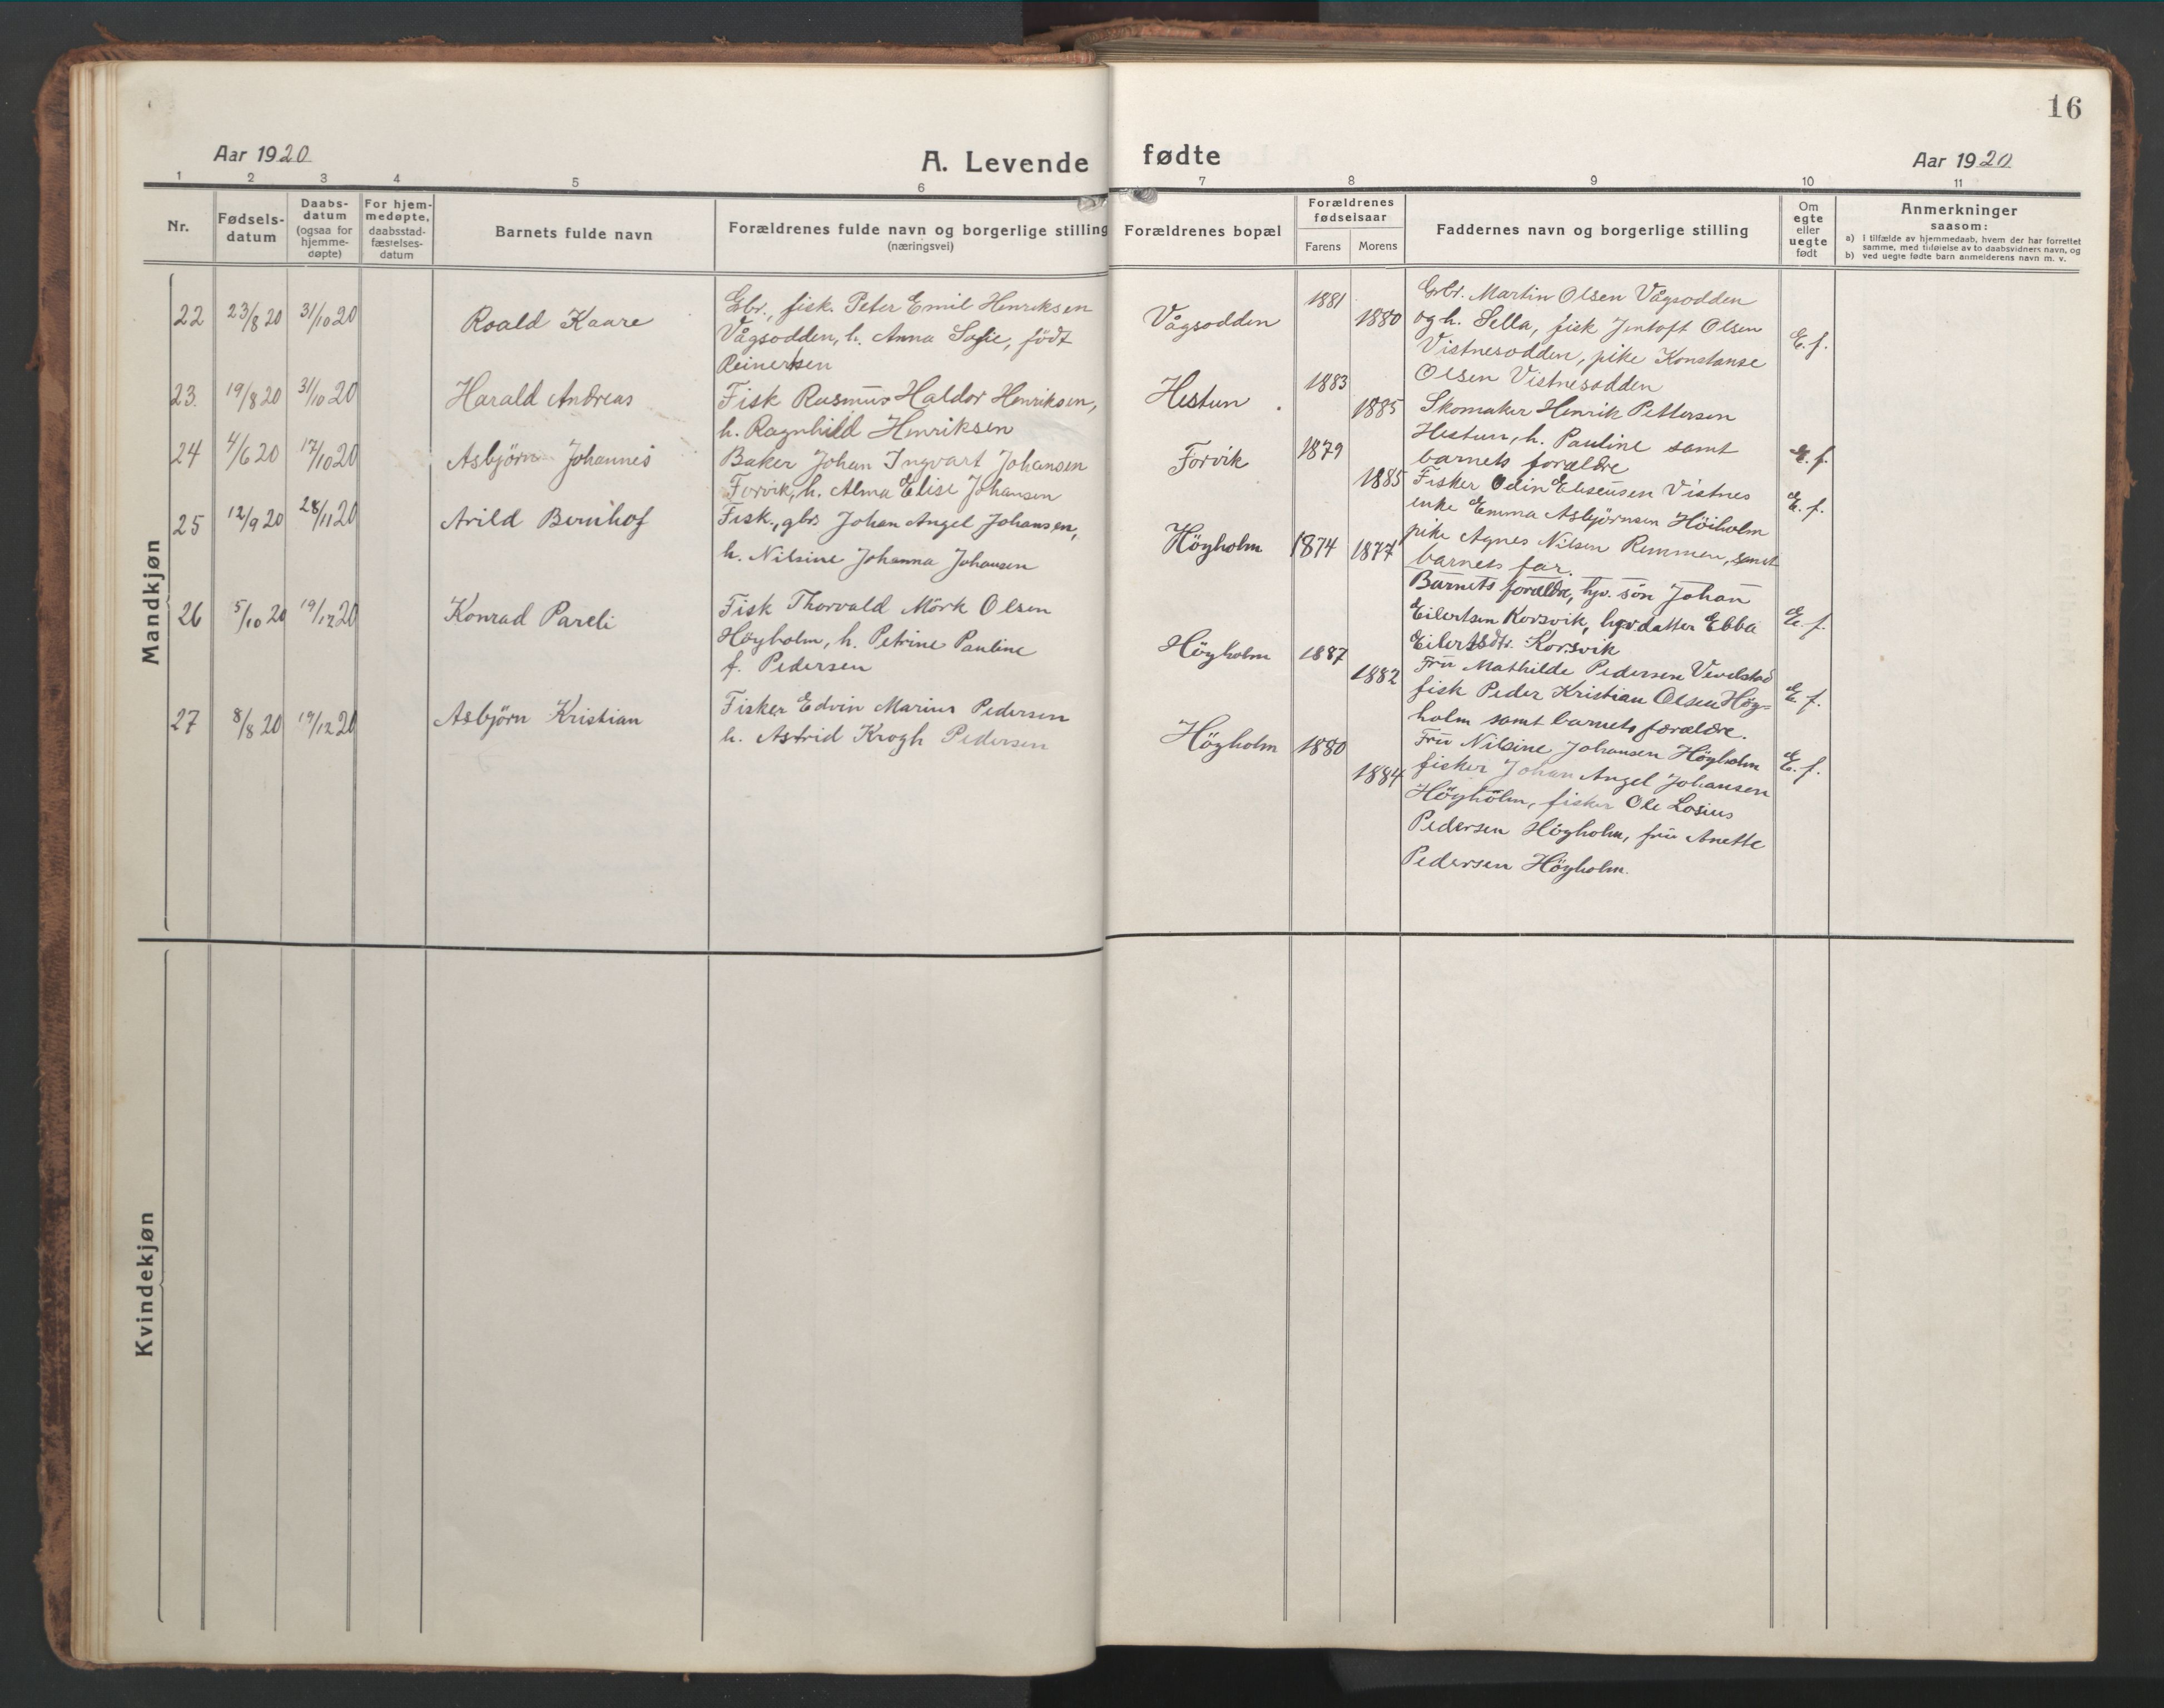 16
Aar 1920
A. Levende fødte
Aar 1920
1 2 3 4 5 6 7 8 9 10 11
Nr.
Fødsels-
datum
Daabs-
datum
(ogsaa for
hjemme-
døpte)
For hjem-
medøpte,
daabsstad-
fæstelses-
datum
Barnets fulde navn
Forældrenes fulde navn og borgerlige stilling
(næringsvei)
Forældrenes bopæl
Forældrenes
fødselsaar
Farens Morens
Faddernes navn og borgerlige stilling
Om
egte
eller
uegte
født
Anmerkninger
saasom:
a) I tilfælde av hjemmedaab, hvem der har forrettet
samme, med tilføielse av to daabsvidners navn, og
b) ved uegte fødte barn anmelderens navn m. v.
Mandkjøn
22 23/8 20 31/10 20 Roald Kaare
Gbr., fisk. Peter Emil Henriksen
Vågsodden, h. Anna Sofie, födt
Reinertsen
Vågsodden 1881 1880
Gbr. Martin Olsen Vågsodden
og h. Sella, fisk Jentoft Olsen
Vistnesodden, pike Konstanse
Olsen Vistnesodden
E. f.
23. 19/8 20 31/10 20 Harald Andreas
Fisk Rasmus Haldor Henriksen,
h. Ragnhild Henriksen
Hestun 1883 1885
Skomaker Henrik Pettersen
Hestun, h. Pauline samt
barnets forældre
E. f.
24 4/6 20 17/10 20 Asbjörn Johannes
Baker Johan Ingvart Johansen
Forvik, h. Alma Elise Johansen
Forvik 1879 1885
Fisker Odin Eliseusen Vistnes
enke Emma Asbjörnsen Höiholm
pike Agnes Nilsen Remmen, samt
barnets far.
E. f.
25 12/9 20 28/11 20 Arild Bernhof
Fisk., gbr Johan Angel Johansen,
h. Nilsine Johanna Johansen
Höyholm 1874 1877
Barnets forældre, hjv. sön Johan
Eilertsen Korsvik, hjv. datter Ebba
Eilertsdtr. Korsvik
E. f.
26 5/10 20 19/12 20 Konrad Pareli
Fisk Thorvald Mörk Olsen
Höyholm, h. Petrine Pauline
f. Pedersen
Höyholm 1887 1882
Fru Mathilde Pedersen Vevelstad
fisk Peder Kristian Olsen Höy=
holm samt barnets forældre.
E. f.
27 8/8 20 19/12 20 Asbjörn Kristian
Fisker Edvin Marius Pedersen
h. Astrid Krogh Pedersen
Höyholm 1880 1884
Fru Nilsine Johansen Höyholm
fisker Johan Angel Johansen
Höyholm, fisker Ole Losius
Pedersen Höyholm, fru Anette
Pedersen Höyholm.
E. f.
Kvindekjøn